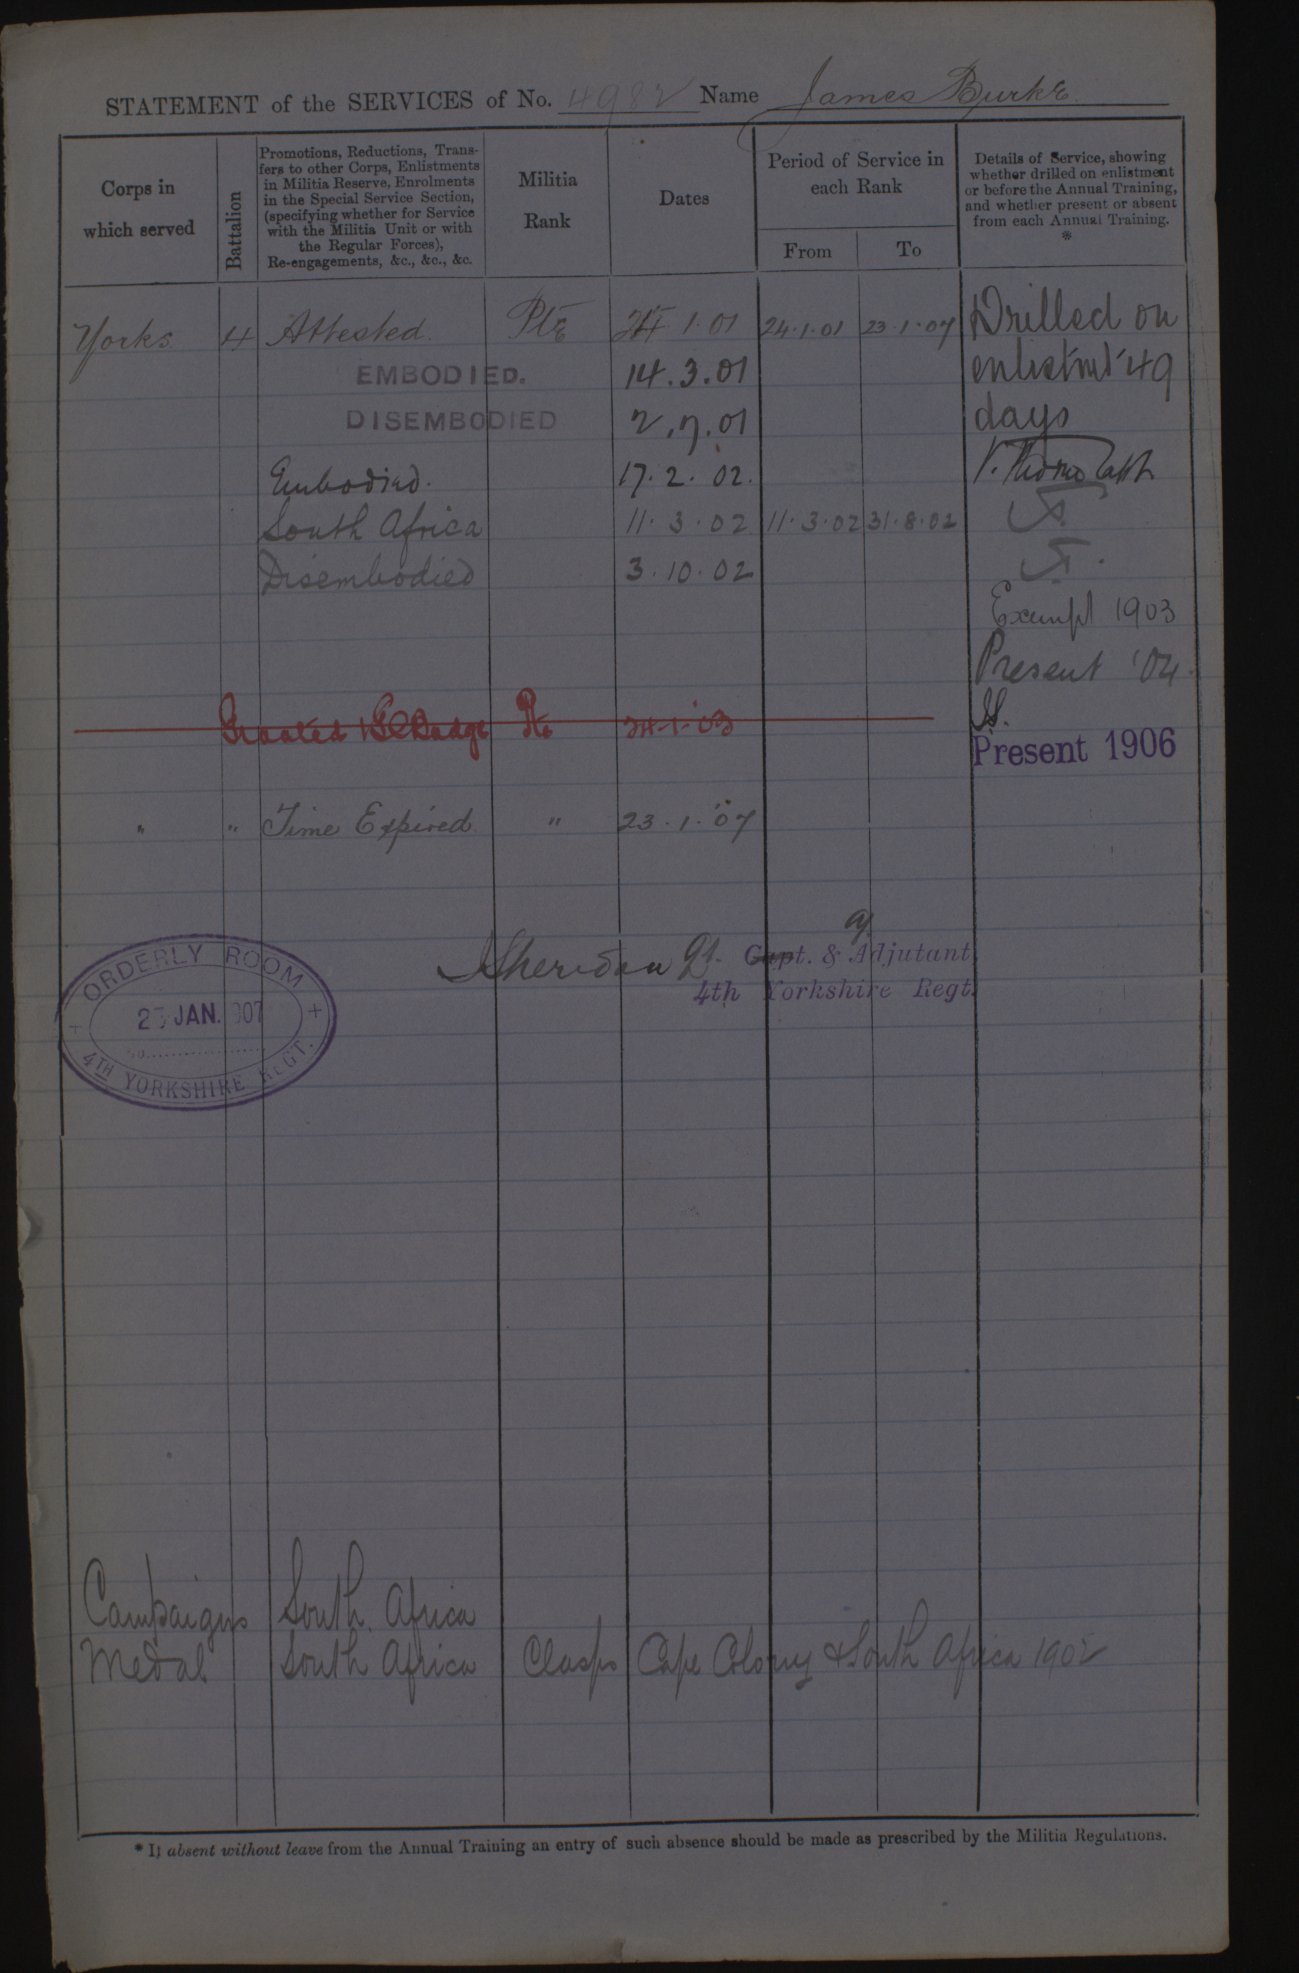 STATEMENT of the SERVICES of No. 4982 Name James Burke
Corps in which served
Battalion
Promotions, Reductions, Trans-
fers to other Corps, Enlistments
in Militia Reserve, Enrolments
in the Special Service Section,
(specifying whether for Service
with the Militia Unit or with
the Regular Forces),
Re-engagements, &c., &c., &c.
Militia Rank
Dates
Period of Service in each Rank
From To
Details of Service, showing
whether drilled on enlistment
or before the Annual Training,
and whether present or absent
from each Annual Training.
*
Yorks 4 Attested. Pte 24 1·01 24·1·01 23·1·07 Drilled on
EMBODIED. 14.3.01 enlistmt 49
DISEMBODIED 2.7.01 days
Embodied. 17.2.02.
South Africa 11·3·02 11·3·02 31·8·02
Disembodied 3·10·02
Exempt 1903
Present '04.
Granted 1 GC Badge Pte 24·1·03
Present 1906
" " Time Expired " 23·1·07
Sheridan Lt. Capt. & Adjutant
4th Yorkshire Regt.
ORDERLY ROOM
JAN. 907
4TH YORKSHIRE REGT.
Campaigns South Africa
Medal South Africa Clasps Cape Colony & South Africa 1902
* If absent without leave from the Annual Training an entry of such absence should be made as prescribed by the Militia Regulations.